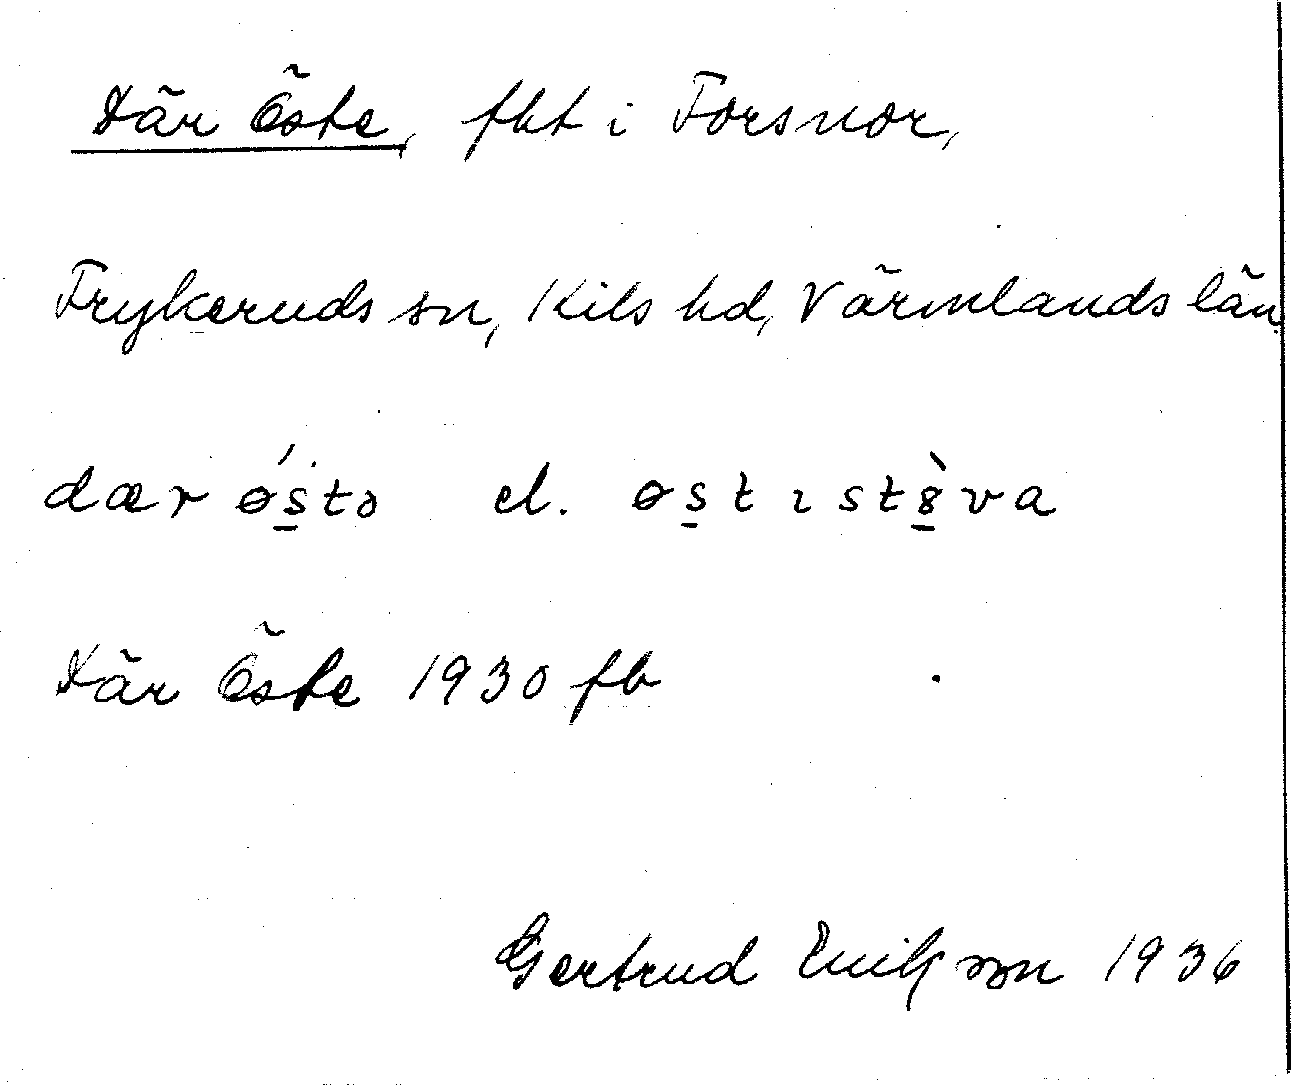 Där Öste, fbt i Forsnor,
Frykeruds sn, Kils hd, Värmlands län
dær ǿs̲tə el. øs̲t ı st8̲̀va
Där Öste 1930 fb
Gertrud Erikson 1936